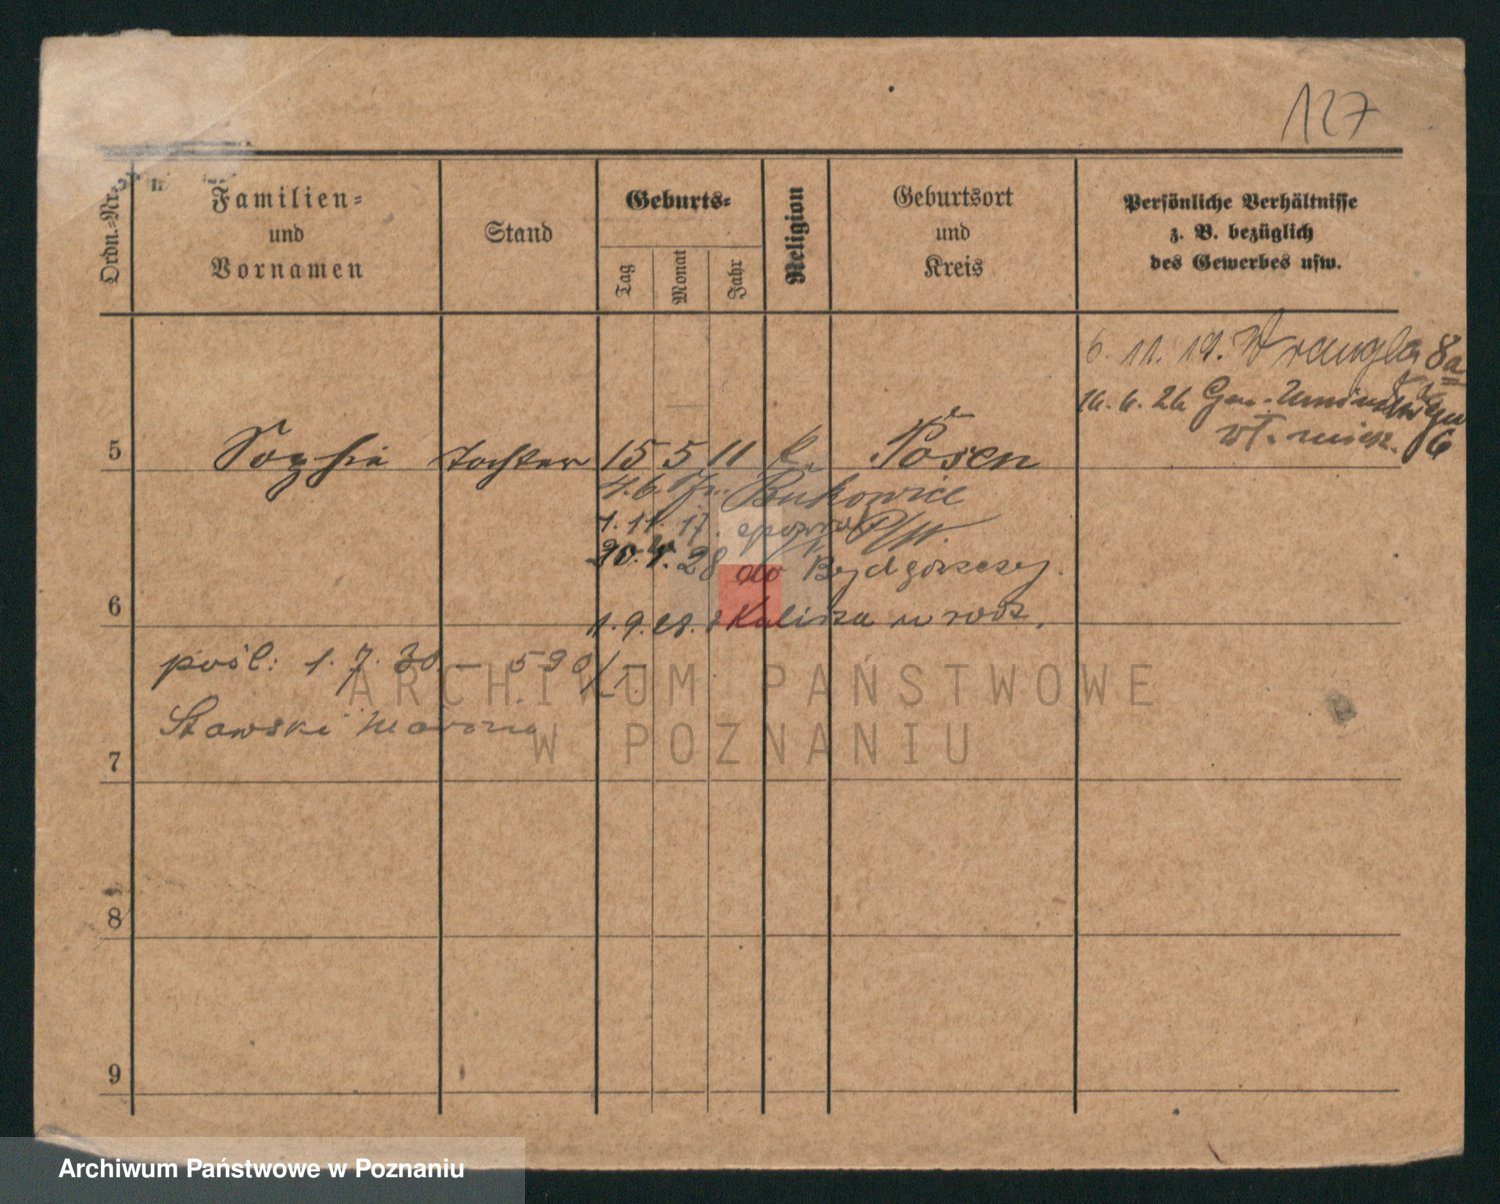 127
Ordn.-Nr.
Familien-
und
Vornamen
Stand
Geburts-
Tag
Monat
Jahr
Religion
Geburtsort
und
Kreis
Persönliche Verhältnisse
z. B. bezüglich
des Gewerbes usw.
6. 11. 19. Wrangla 8a
16. 6. 26 Gen.
6
5 Sophie Tochter 15 5 11 k Posen
4. 6. Bukowice
1. 11. 17.
20. 4. 28 do Bydgoszczy.
6 1. 9. Kalisza w rodz.
pośl: 1. 7. 30 — 590/
Stawski
7
8
9
ARCHIWUM PAŃSTWOWE
W POZNANIU
Archiwum Państwowe w Poznaniu